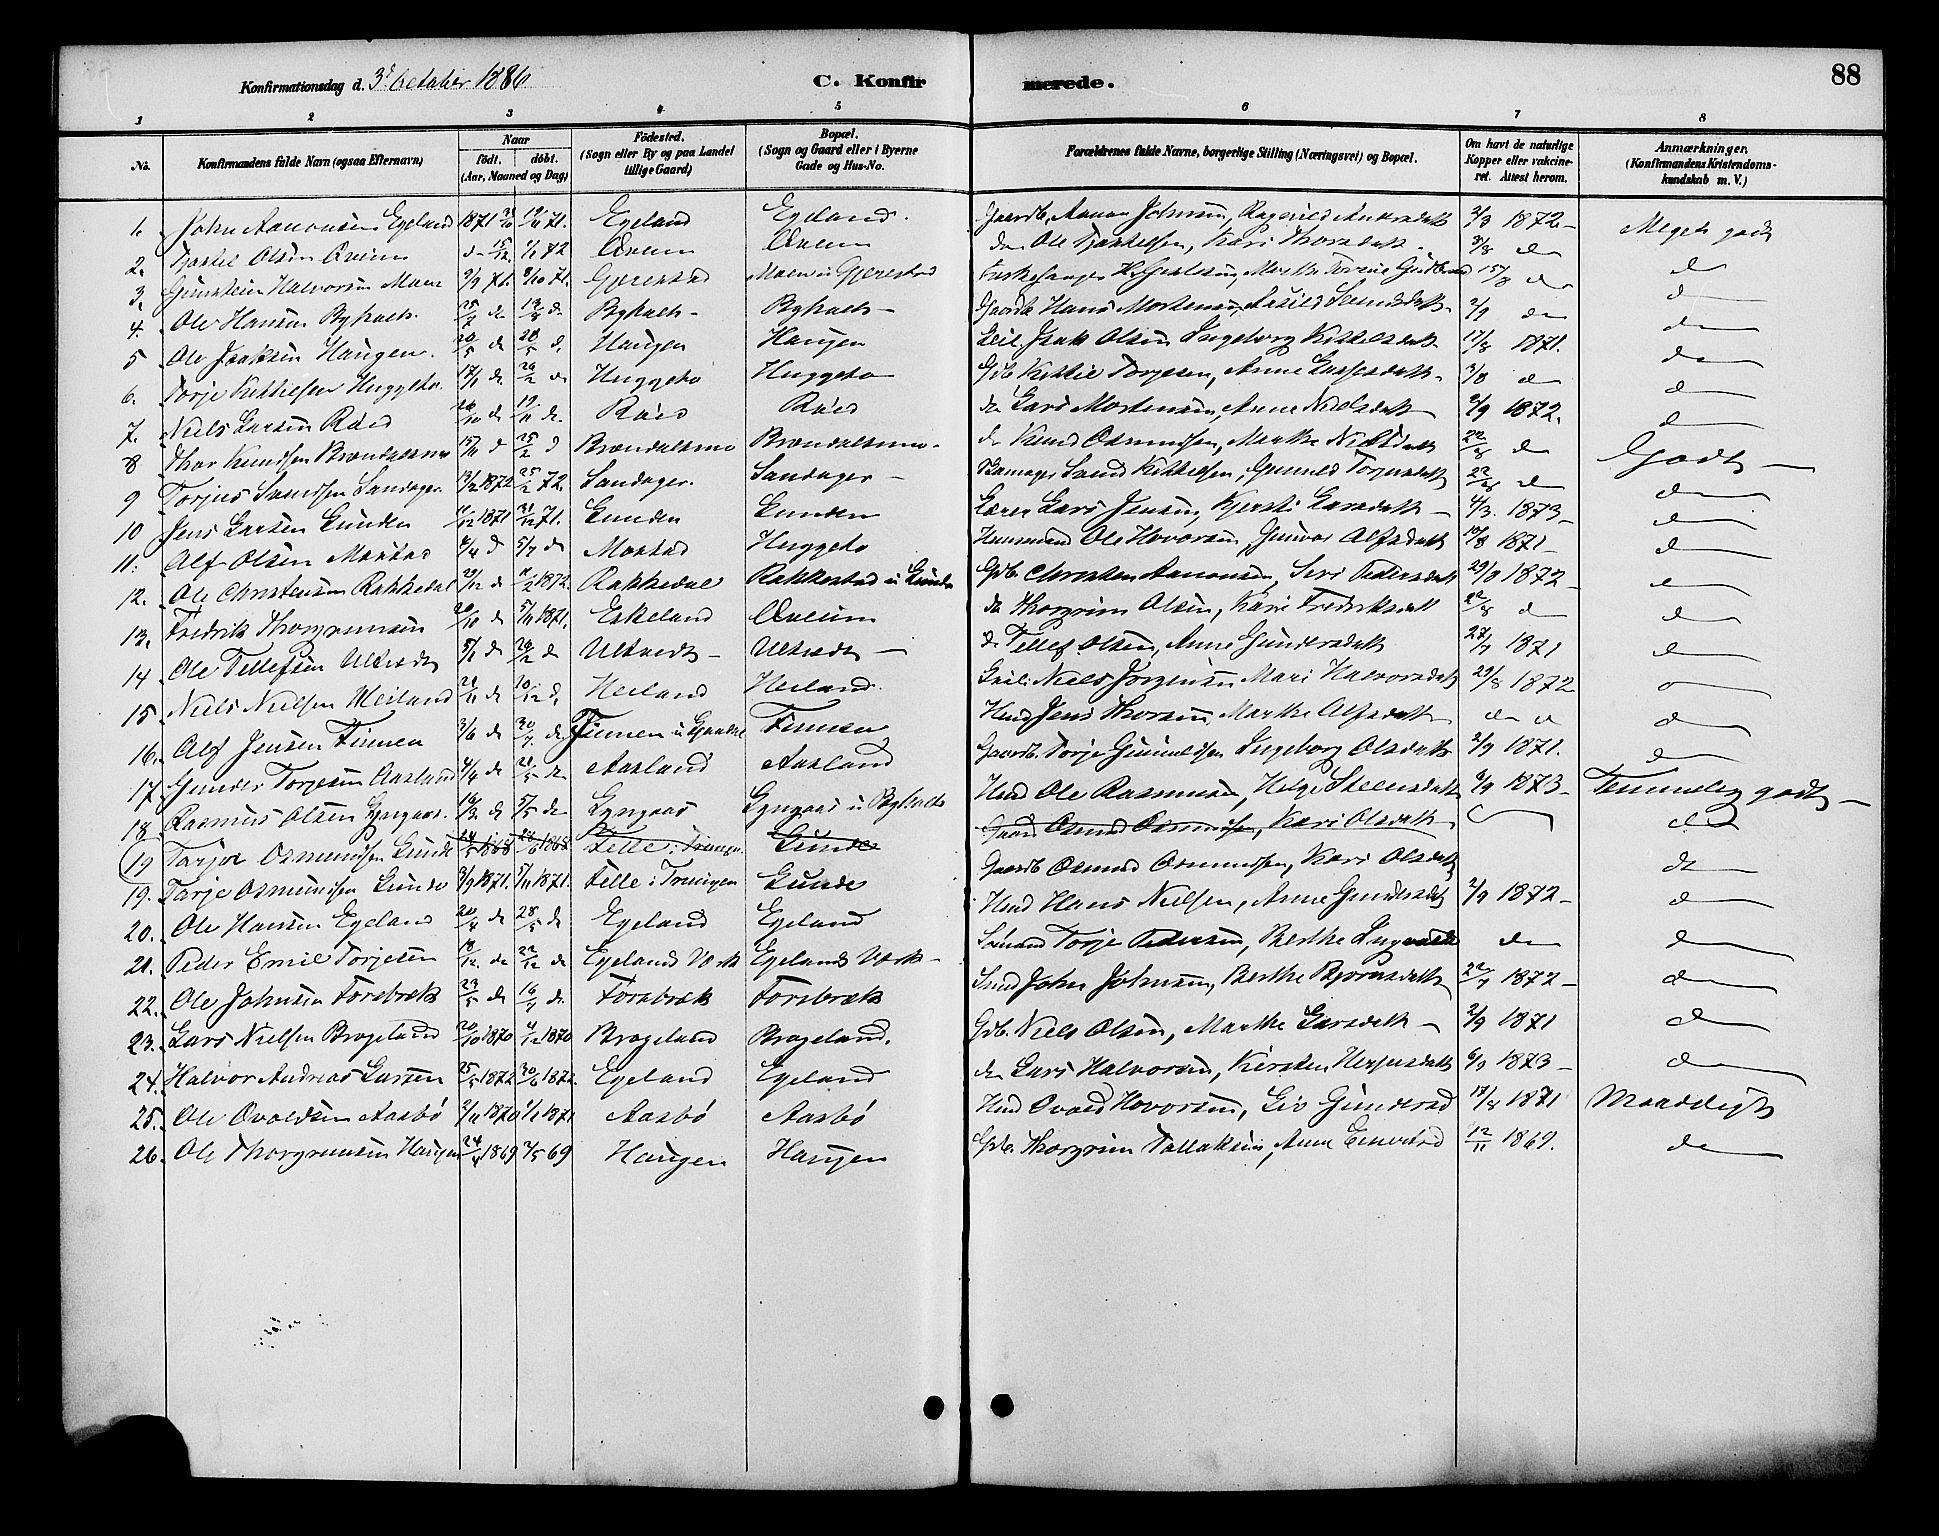 88
Konfirmationsdag d. 3d October 1886
C. Konfirmerede.
1 2 3 4 5 6 7 8
No. Konfirmandens fulde Navn (ogsaa Efternavn) Naar født. døbt. (Aar, Maaned og Dag) Fødested. (Sogn eller By og paa Landet tillige Gaard) Bopæl. (Sogn og Gaard eller i Byerne Gade og Hus-No. Forældrenes fulde Navne, borgerlige Stilling (Næringsvei) og Bopæl. Om havt de naturlige Kopper eller vakcineret. Attest herom. Anmærkninger, (Konfirmandens Kristendomskundskab m. V.)
1. John Aanonsen Egeland 1871 71. Egeland Egeland. Gaardb. Aanon Johnsen, 2/3 1872 Meget godt
2. Kjøstel Olsen Qveim do 15/12 1/1 72 Qveim Qveim do Ole Kari 3/8 do do
3. Gunstein Halvorsen Moen 2/9 71. 8/10 71. Gjerestad Moen i Gjerestad 15/8 do do
4. Ole Hansen Byholt 25/7 do 13/8 do Byholt Byholt Gaardb. Hans Mortensen, 2/9 do do
5 Ole Isaksen Haugen. 20/5 do 28/5 do Haugen Haugen Leil. Isak Olsen Ingeborg Kittelsdatt. 17/8 1871. do
6. Torje Kittelsen Huggeto. 17/1 do 20/2 do Huggeto Huggeto Gdb. Kittil Torjesen, Anne 3/8 do do
7. Niels Larsen Røed 20/10 do 19/11 do Røed Røed do Lars Mortensen, Anne Nielsdatt 2/9 1872. do
8 Thor Knudsen Brændalsmo 15/11 do 25/2 do Brændalsmo Brændalsmo do Knud Osmundsen, Marthe Nielsdatt 22/8 do Godt
9 Torjus Sandager 13/12 1872 25/2 72. Sandager. Sandager Kittelsen, Gunild Torjusdatt 22/8 do do
10 Jens Larsen Lunden 11/12 1871 31/12 71. Lunden Lunden Lærer Lars Jensen, Kjersti Larsdatt 4/3. 1873 do
11. Alf Olsen Mostad 4/4 do 5/7 do Mostad Huggeto Huusmand Ole Hovorsen, Gunvor Alfsdatt 10/8 1871 do
12. Ole Christensen Rakkedal 21/12 do 11/2 1872. Rakkedal Rakkestad u Lunde Gdb. Christen Aanonsen, Siri Pedersdatt 29/8 1872 do
13. Fredrik Thorgrimsen 20/10 do 5/11 1871. Eskeland Qveim do Thorgrim Olsen, Kari Fredriksdatt 22/8 do do
14 Ole Tellefsen Ulltvedt 5/1 do 20/2 do Ulltvedt Ulltvedt do Tellef Olsen, Anne Gundersdatt 27/7 1871 do
15 Niels Nielsen Heiland 21/11 do 10/12 do Heiland Heiland. Leil. Niels Jørgensen Mari Halvorsdatt 29/8 1872 do
16. Alof Jensen Finnen 3/6 do 30/7. do Finnen Finnen Hmd Jens Thorsen, Marthe Alfsdatt do do do
17 Gunder Torjesen Aasland 4/4 do 21/5 do Aasland Aasland Gaardb. Torje Gunuldsen Ingeborg Olsdatt 2/9 1871. do
18 Rasmus Olsen Lyngaas. 16/3 do 5/5 do Lyngaas Lyngaas u Byholt Hmd Ole Rasmussen, Helge Steensdatt 8/9 1873 Temmelig godt
19 Tarjer Osmundsen Lunde 1868 1868 Felle i Lunde Gaardb Osmund Osmundsen, Kari Olsdatt do
19. Tarje Osmundsen Lunde 3/9 1871. 5/11 1871. Felle i Treungen Lunde Gaardb Osmund Osmundsen, Kari Olsdatt do
20. Ole Hansen Egeland 20/4 do 28/5 do Egeland Egeland Hmd Hans Nielsen, Anne Gundersdatt 2/9 1872 do
21. Peder Emil Torjesen 18/12. do 22/12 do Egelands Værk Egelands Værk Sømand Torje Pedersen, Berthe do do
22. Ole Johnsen Forsbræk 23/5 do 16/7 do Forsbræk Forsbræk John Johnsen, Berthe Bjørnsdatt 22/7 1872 do
23. Lars Nielsen Brogeland 20/10 1870 4/12 1870 Brogeland Brogeland. Gdb. Niels Olsen, Marthe Larsdatt 2/9 1871 do
24. Halvor Andreas Larsen 25/5 1872 30/6 1872. Egeland Egeland do Lars Halvorsen, Kirsten 6/9 1873 do
25. Ole Ovaldsen Aasbø 2/11 1870 1/1 1871 Aasbø Aasbø Hmd Ovald Hovorsen, Liv Gundersd 17/8 1871 Maadeligt
26. Ole Thorgrimsen Haugen 24/4 1869 7/5 69 Haugen Haugen Gdb. Thorgrim Tallaksen, Anne 12/11 1869. do